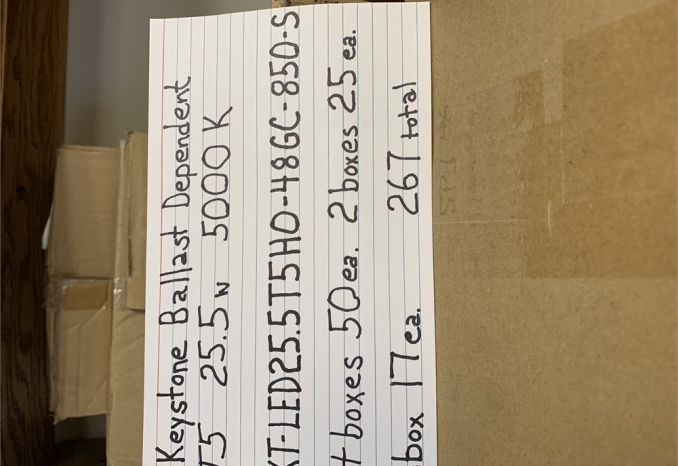 Keystone Ballast Dependent
T5 25.5w 5000K
KT-LED25.5T5HO-48GC-850-S
boxes 50ea. 2 boxes 25 ea.
box 17ea. 267 total